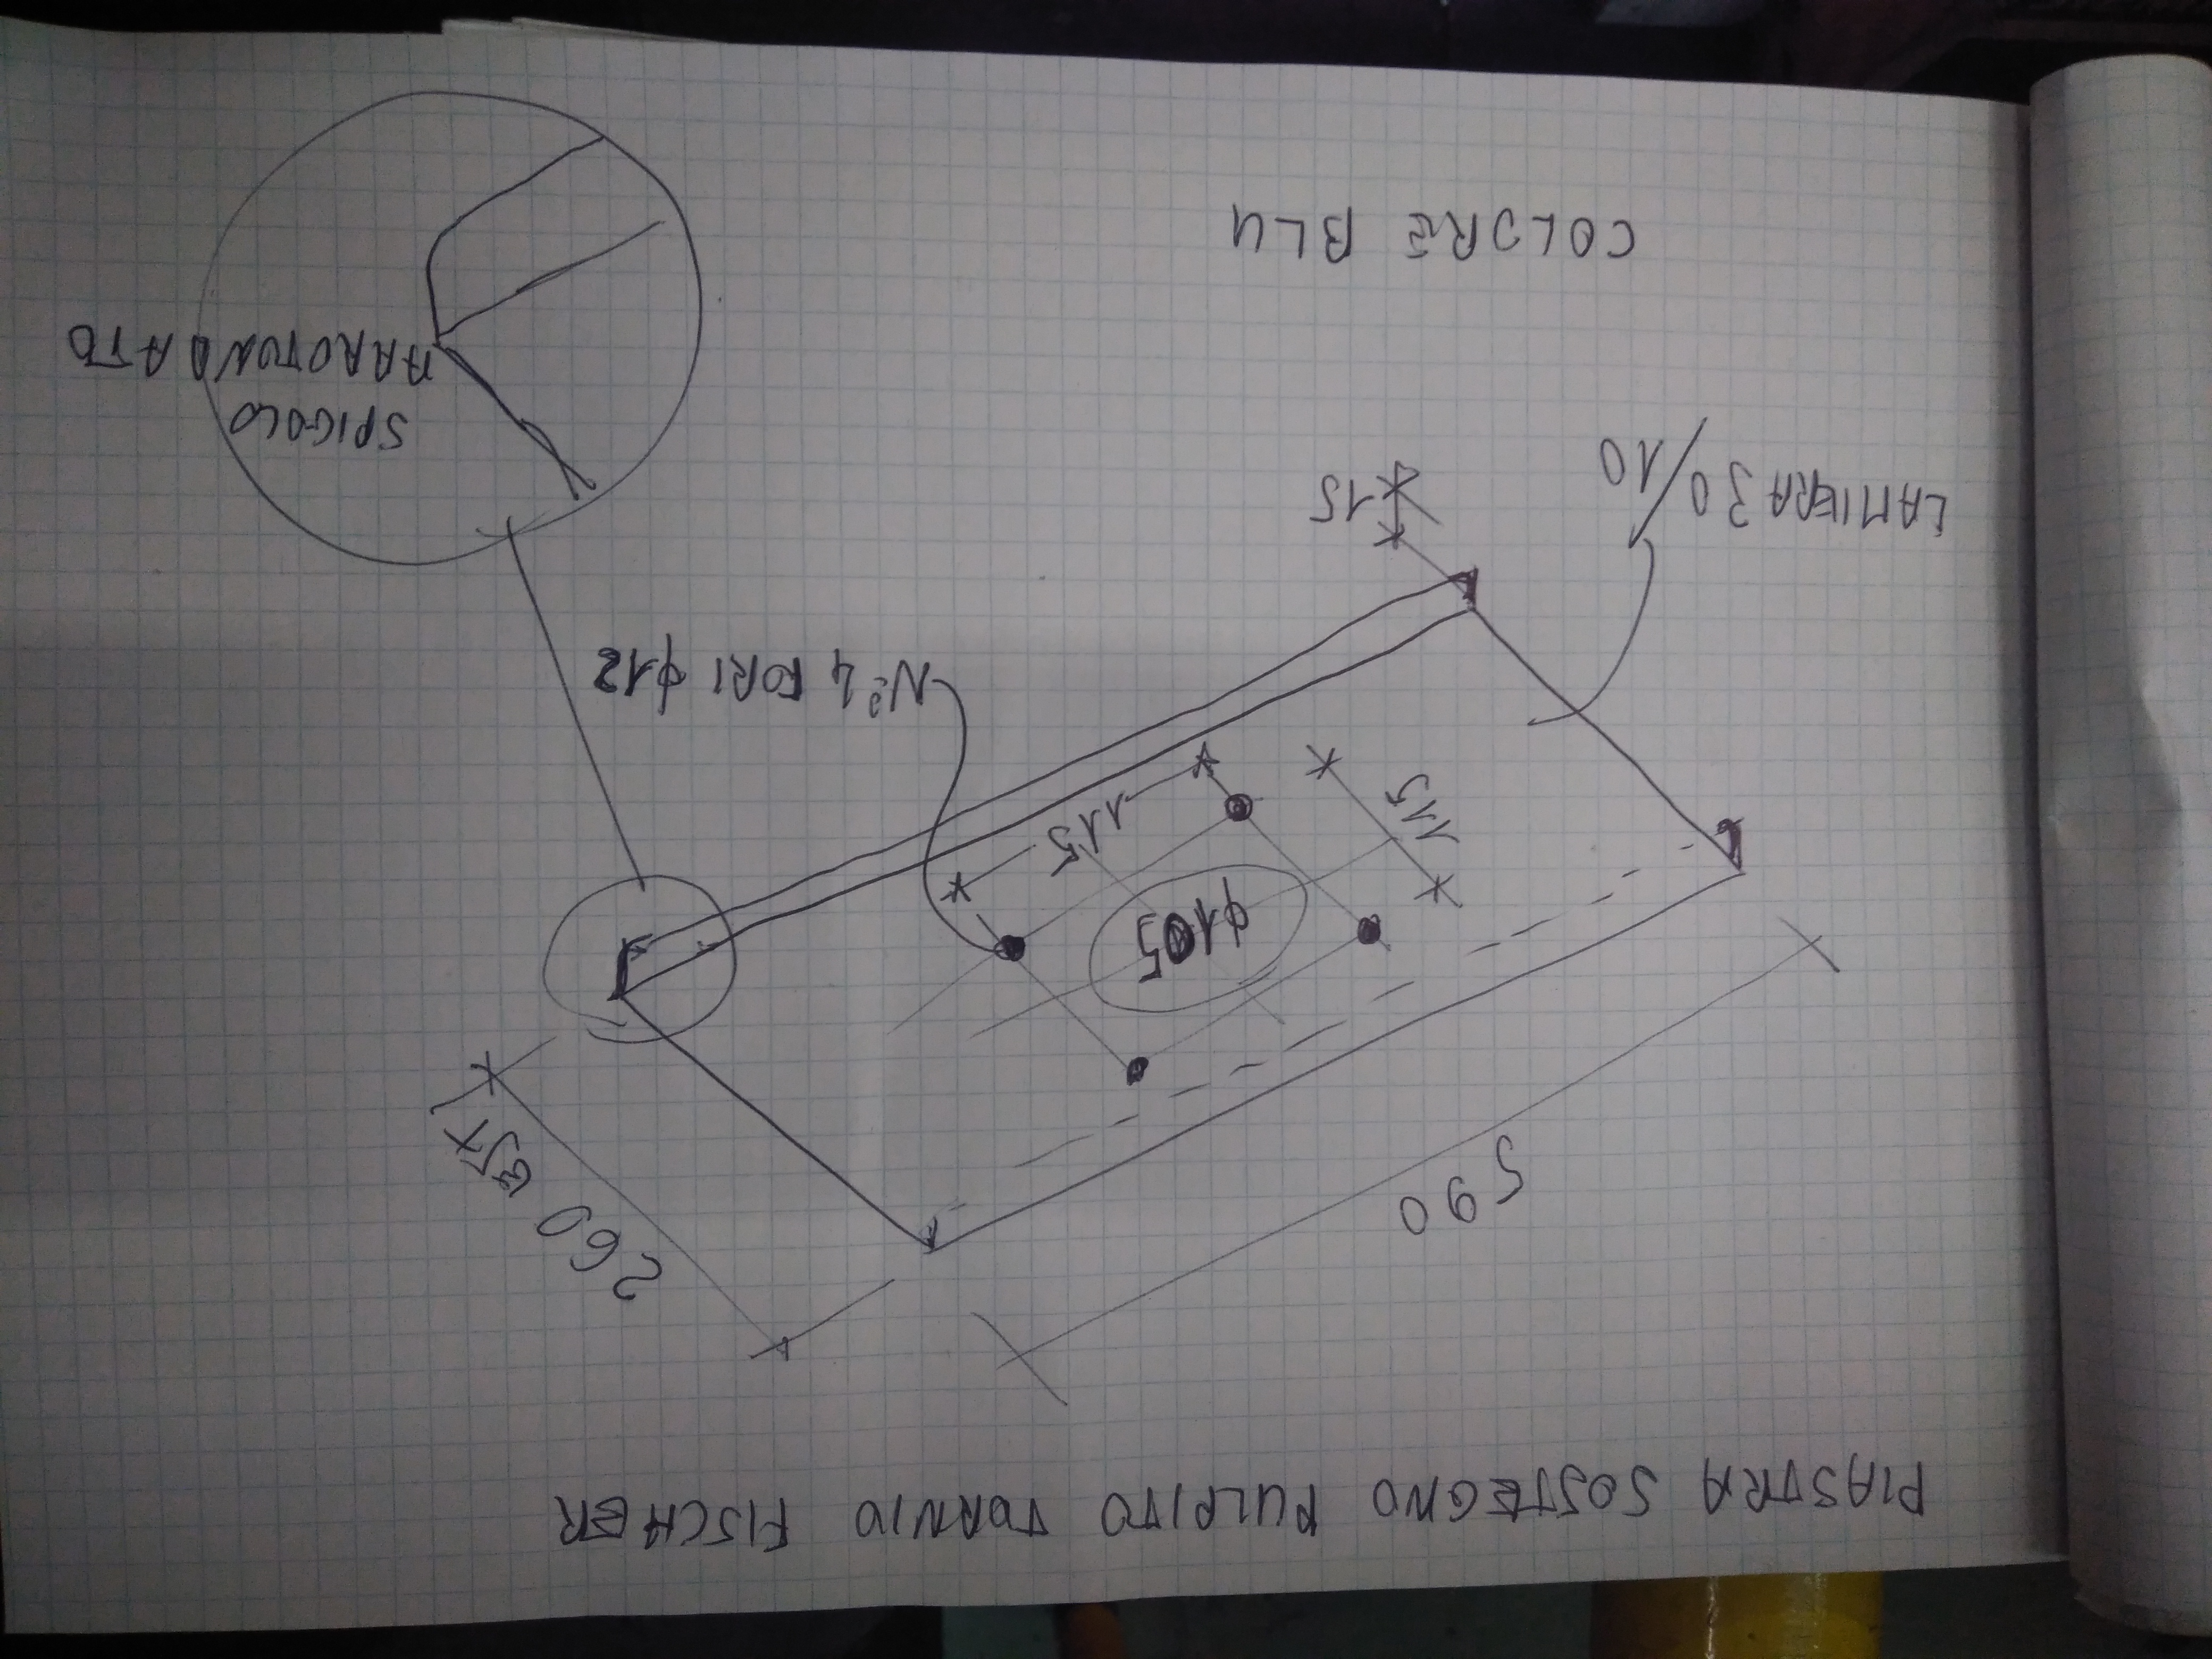 PIASTRA SOSTEGNO PULPITO TORNIO FISCHER
590
260 EST
φ105
115
115
N° 4 FORI φ12
LAMIERA 30/10
15
SPIGOLO
ARROTONDATO
COLORE BLU